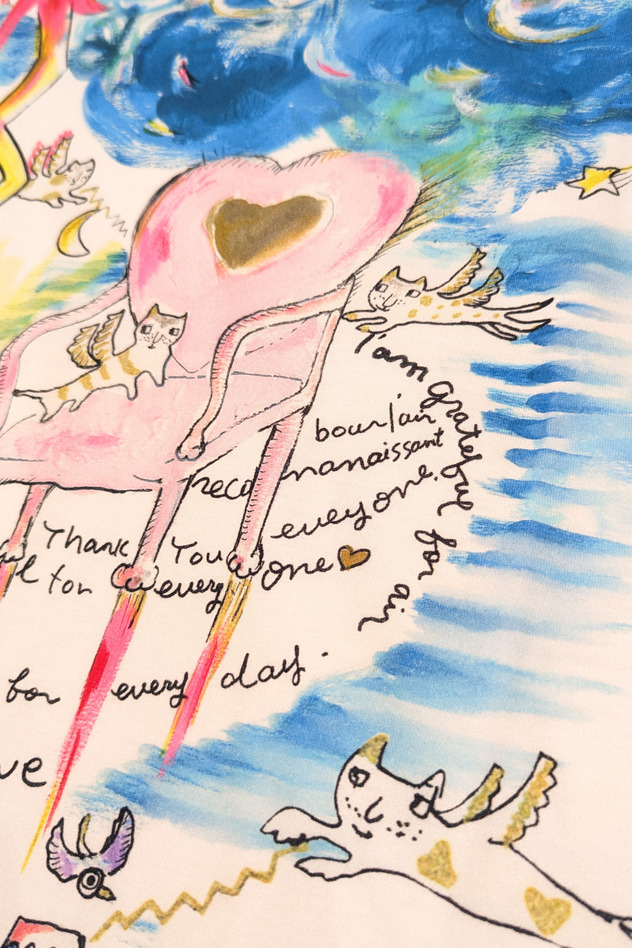 I am grateful for air
bour l'air
reco nnanaissant
everyone.
Thank You
l for every One
for every day.
ve